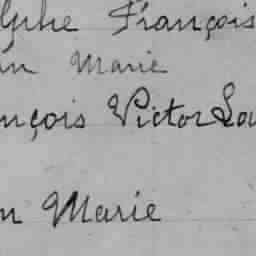 lphe François
n Marie
nçois Victor Lou
n Marie